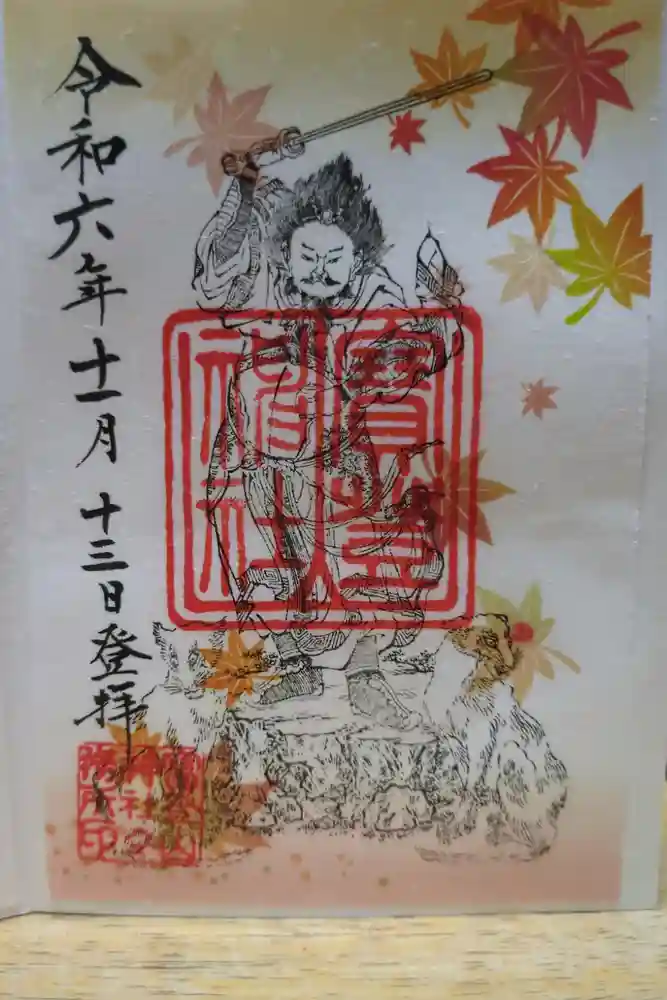 令和六年十一月十三日登拝
寶登山
神社